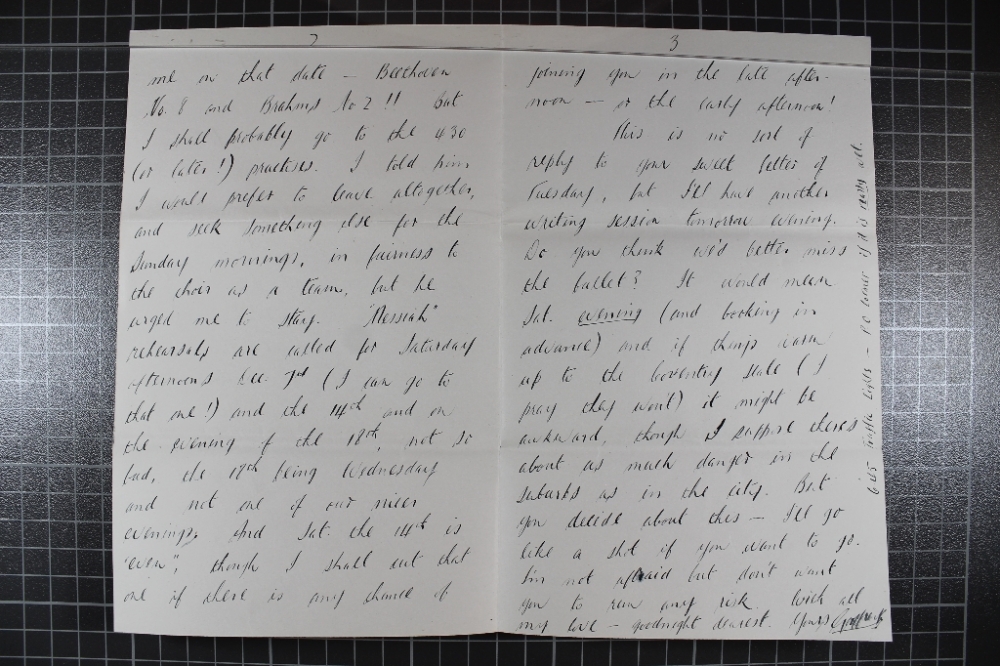 2
me on that date – Beethoven
No. 8 and Brahms No 2 !! But
I shall probably go to the 4.30
(or later!) practises. I told him
I would prefer to leave altogether,
and seek something else for the
Sunday mornings, in fairness to
the choir as a team, but he
urged me to stay. "Messiah"
rehearsals are called for Saturday
afternoons Dec. 7th (I can go to
that one!) and the 14th and on
the evening of the 18th, not so
bad, the 18th being Wednesday
and not one of our nicer
evenings. And Sat. the 14th is
"even", though I shall cut that
one if there is any chance of
3
joining you in the late after-
noon – or the early afternoon!
This is no sort of
reply to your sweet letter of
Tuesday, but I'll have another
writing session tomorrow evening.
Do you think we'd better miss
the ballet? It would mean
Sat. evening (and booking in
advance) and if things warm
up to the Coventry state (I
pray they won't) it might be
awkward, though I suppose there's
about as much danger in the
suburbs as in the city. But
you decide about this – I'll go
like a shot if you want to go.
I'm not afraid but don't want
you to run any risk. With all
my love – goodnight dearest. Yours
6.45 Traffic Lights – P.O. corner if it is really wet.